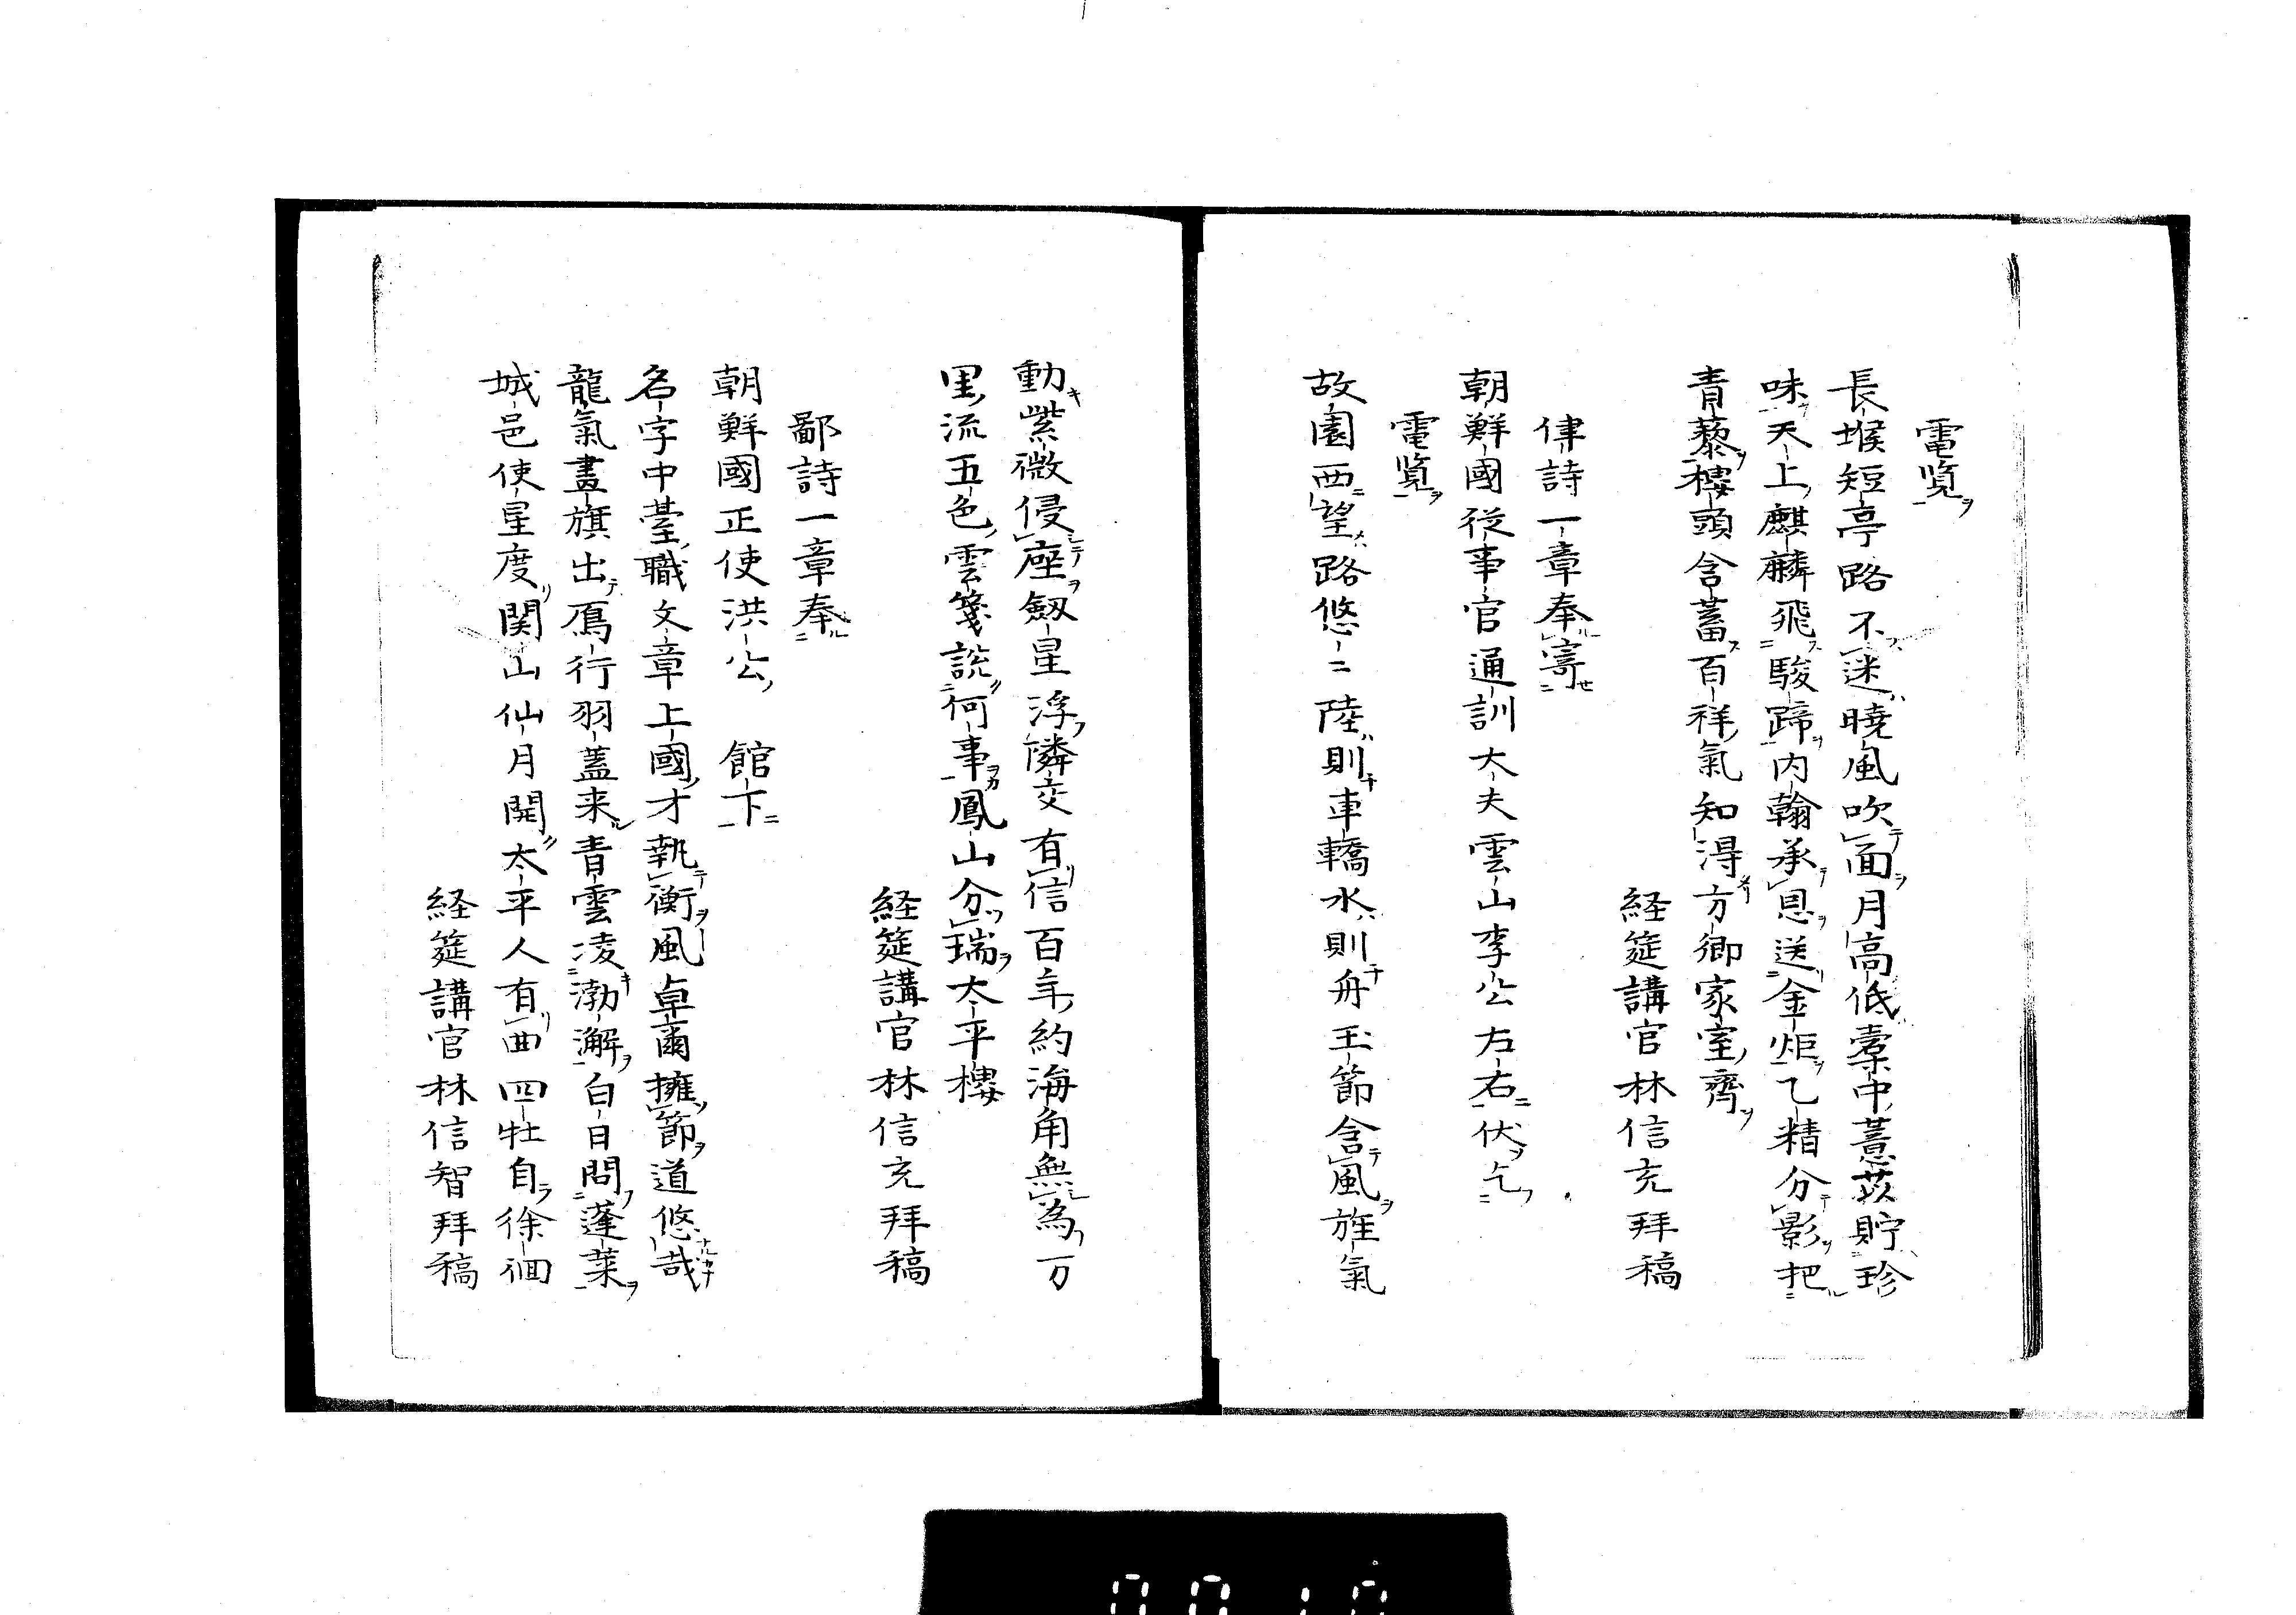 電覧
長堠短亭路不迷曉風吹面月高低橐中薏苡貯珍
味天上麒麟飛駿蹄内翰承恩送金炬乙精分影把
青藜樓頭含蓄百祥氣知得方卿家室齊
経筵講官林信充拜稿
律詩一章奉寄
朝鮮國從事官通訓大夫雲山李公左右伏乞
電覧
故園西望路悠々陸則車轎水則舟玉節含風旌氣
動紫微侵座劔星浮隣交有信百年約海角無為万
里流五色雲箋説何事鳳山分瑞太平樓
経筵講官林信充拜稿
鄙詩一章奉
朝鮮國正使洪公　館下
名字中臺職文章上國才執衡風卓爾擁節道悠哉
龍氣畫旗出鴈行羽蓋来青雲凌渤澥白日問蓬莱
城邑使星度関山仙月開太平人有曲四牡自徐徊
経筵講官林信智拜稿